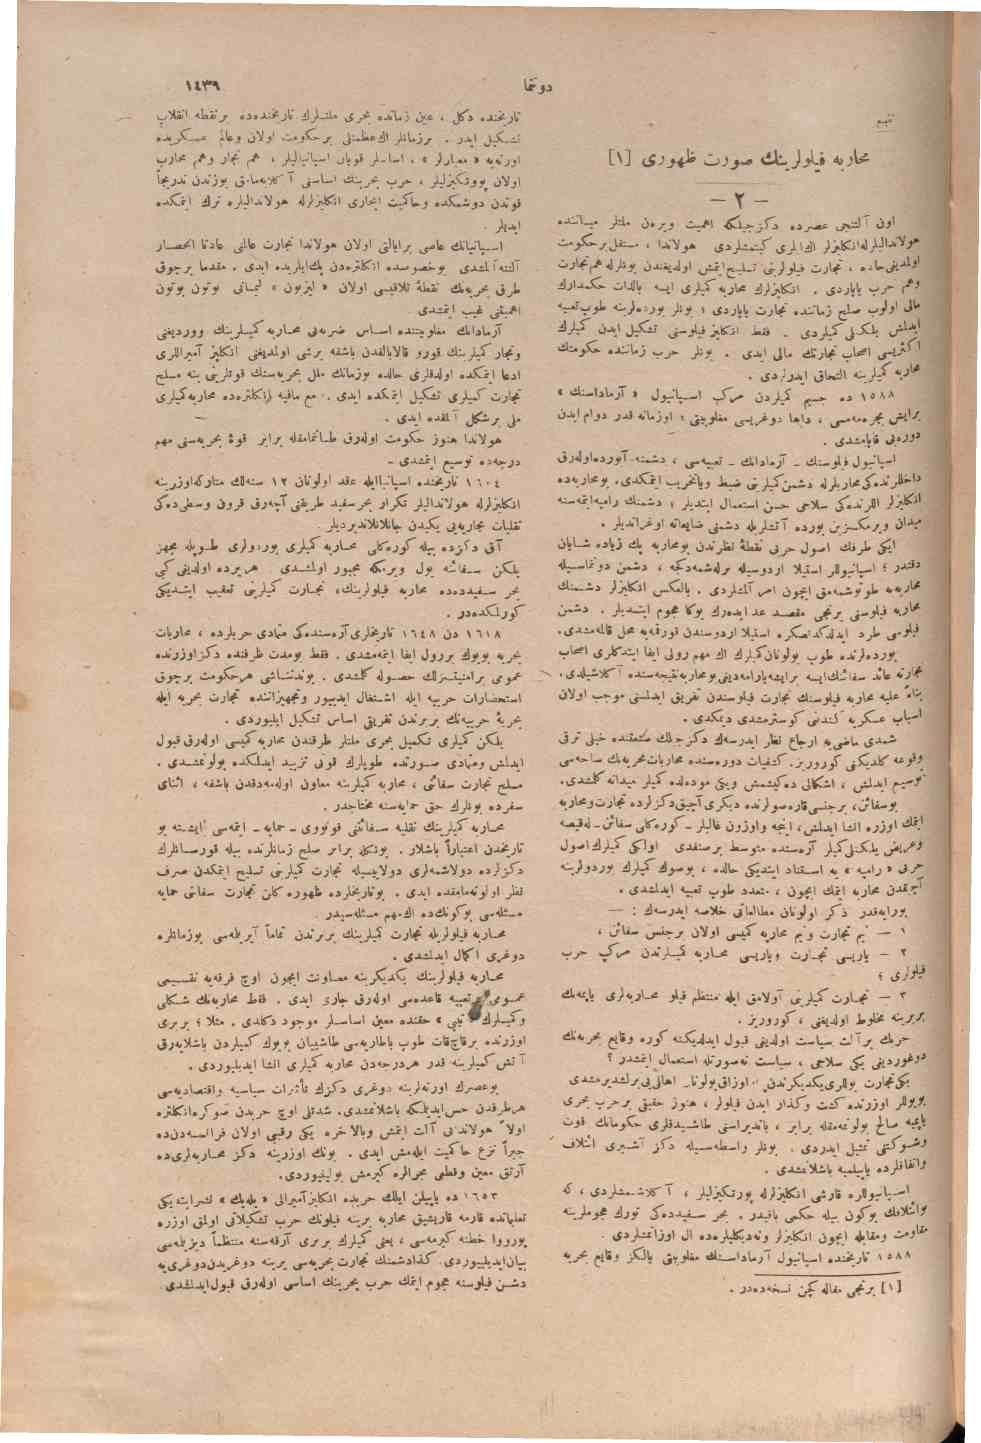 دونما
١٤٣٩
تتبع
محاربه فیلولرینك صورت ظهوری [١]
— ٢ —
اون آلتنجی عصرده دكزجیلكه اهمیت ویرەن ملتلر میاننده
هولاندالیلرله انكلیزلر اك ایلری كیتمشلردی هولاندا ، مستقل بر حكومت
اولمدیغی حالده ، تجارت فیلولرینی تسلیح ایتمش اولدیغندن بونلرله هم تجارت
وهم حرب یاپاردی . انكلیزلرك محاربه كمیلری ایسه بالذات حكمدارك
مالی اولوب صلح زماننده تجارت یاپاردی ؛ بونلر بوردەلرینه طوپ تعبیه
ایدلش یلكنلی كمیلردی . فقط انكلیز فیلوسنی تشكیل ایدن كمیلرك
اكثریسی اصحاب تجارتك مالی ایدی . بونلر حرب زماننده حكومتك
محاربه كمیلرینه التحاق ایدرلردی .
١٥٨٨ ده جسیم كمیلردن مركب اسپانیول « آرماداسنك »
برایش بجرەمەمسی ، داها دوغریسی مغلوبیتی ؛ اوزمانه قدر دوام ایدن
دورەیی قاپامشدی .
اسپانیول فیلوسنك ـ آرمادانك ـ تعبیەسی ، دشمنه آبورده اولەرق
داخللرندەكی محاربلرله دشمن كمیلرینی ضبط ویا تخریب ایتمكدی. بو محاربەده
انكلیزلر اللرندەكی سلاحی حسن استعمال ایتدیلر ؛ دشمنك رامپه ایتمەسنه
میدان ویرمكسزین بورده آتشلریله دشمنی ضایعاته اوغراتدیلر .
ایكی طرفك اصول حربی نقطۀ نظرندن بو محاربه پك زیاده شایان
دقتدر ؛ اسپانیوللر استیلا اردوسیله برلەشمەدكجه ، دشمن دونماسیله
محاربەیه طوتوشمەمق ایچون امر آلمشلردی . بالعكس انكلیزلر دشمنك
محاربه فیلوسنی برنجی مقصد عد ایدەرك بوكا هجوم ایتدیلر . دشمن
فیلوسی طرد ایدلدكدنصكره استیلا اردوسندن قورقمەیه محل قالمەمشدی.
بوردەلرنده طوپ بولونان كمیلرك اك مهم رولی ایفا ایتدكلری اصحاب
تجارته عائد سفائنك ایسه برایشه یارامەدیغی بو محاربه نتیجەسنده آكلاشیلدی.
بناءً علیه محاربه فیلوسنك تجارت فیلوسندن تفریق ایدلسنی موجب اولان
اسباب عسكریه كندینی كوسترمشدی دیمكدی .
شمدی ماضی‌یه ارجاع نظر ایدرسەك دكزجیلك متمقنده خیلی ترقی
وقوعه كلدیكنی كوروریز. كشفیات دورەسنده محاربات بحریەنك ساحەسی
توسیع ایدلش ، اشكالی دەكیشمش ویكی مودەلده كمیلر میدانه كلمشدی.
بوسفائن، برجنسی قارەصولرنده دیكری آچیق دكزلرده تجارت ومحاربه
ایتمك اوزره انشا ایدلش، اینجه واوزون غالیلر ـ كورەكلی سفائن ـ له قیصه
وعریض یلكنلی كمیلر آرەسنده متوسط برصنفدی . اولكی كمیلرك اصول
حربی « رامپه » یه استناد ایتدیكی حالده ، بوصوك كمیلرك بوردولرینه
آچیقدن محاربه ایتمك ایچون ، متعدد طوپ تعبیه ایدلمشدی .
بورایه‌قدر ذكر اولونان مطالعاتی خلاصه ایدرسەك : —
١ — نیم تجارت ونیم محاربه كمیسی اولان برجنس سفائن ،
٢ — یاریسی تجارت ویاریسی محاربه كمیلرندن مركب حرب
فیلولری ؛
٣ — تجارت كمیلرینی آولامق ایله منتظم فیلو محاربەلری یاپمەنك
بربرینه مخلوط اولدیغنی ، كوروریز .
حربك برآلت سیاست اولدیغی قبول ایدلدیكنه كوره وقایع بحریەنك
دوغوردیغی یكی سلاحی ، سیاست نەصورتله استعمال ایتمشدر ؟
یكی تجارت یوللری یكدیكرندن اوزاق بولونان اهالی‌یی برلشدیرمشدی
بویوللر اوزرنده كشت وكذار ایدن فیلولر ، هنوز حقیقی برحرب بحری
یاپمیه صالح بولونمەمقله برابر ، باندیراسنی طاشیدقلری حكومتك قوت
وشوكتنی تمثیل ایدردی . بونلر واسطەسیله دكز آشیری ائتلاف
واتفاقلرده یاپیلمیه باشلامشدی .
اسپانیوللره قارشی انكلیزلرله پورتكیزلیلر ، آكلاشمشلردی ، كه
بوائتلافك بوكون بیله حكمی باقیدر . بحر سفیددەكی تورك هجوملرینه
مقاومت ومقابله ایچون انكلیزلر ونەدیكلیلرده ال اوزاتمشلردی .
١٥٨٨ تاریخنده اسپانیول آرماداسنك مغلوبیتی یالكز وقایع بحریه
[١] برنجی مقاله كچن نسخەدەدر .
تاریخنده دكل ، عین زمانده بحری ملتلرك تاریخندەده برنقطه انقلاب
تشكیل ایدر . برزمانلر اك عظمتلی برحكومت اولان وعالم عسكریده
اورتەیه « معیارلر » ، اساسلر قویان اسپانیالیلر ، هم تجار وهم محارب
اولان پورتكیزلیلر ، حرب بحرینك اساسنی آكلایەمامق یوزندن تدریجاً
قوتدن دوشمكده وحاكمیت ابحاری انكلیزلرله هولاندالیلره ترك ایتمكده
ایدیلر .
اسپانیانك عاصی برایالتی اولان هولاندا تجارت عالمی عادتا انحصار
آلتنه آلمشدی بوخصوصده انكلترەدن پك ایلریده ایدی . مقدما برچوق
طرق بحریەنك نقطۀ تلاقیسی اولان « لیزبون » لیمانی بوتون بوتون
اهمیتنی غیب ایتمشدی .
آرمادانك مغلوبیتنده اساس ضربەیی محاربه كمیلرینك ووردیغنی
وتجار كمیلرینك قورو قالابالقدن باشقه برشی اولمدیغنی انكلیز آمیراللری
ادعا ایتمكده اولدقلری حالده بوزمانك ملل بحریەسنك قوتلرینی ینه مسلح
تجارت كمیلری تشكیل ایتمكده ایدی . مع مافیه انكلترەده محاربه كمیلری
ملی برشكل آلمقده ایدی .
هولاندا هنوز حكومت اولەرق طانمامقله برابر قوۀ بحریەسنی مهم
درجەده توسیع ایتمشدی .
١٦٠٤ تاریخنده اسپانیا ایله عقد اولونان ١٢ سنەلك متاركه اوزرینه
انكلیزلرله هولاندالیلر تكرار بحرسفید طریقنی آچەرق قرون وسطی‌دەكی
نقلیات تجاریەیی یكیدن جانلاندیردیلر.
آق دكزده بیله كورەكلی محاربه كمیلری بوردولری طوپله مجهز
یلكن سفائننه یول ویرمكه مجبور اولمشدی . هریرده اولدیغی كبی
بحر سفیددەده محاربه فیلولرینك، تجارت كمیلرینی تعقیب ایتدیكی
كورلمكدەدر.
١٦١٨ دن ١٦٤٨ تاریخلری آرەسندەكی متمادی حربلرده ، محاربات
بحریه بویوك بررول ایفا ایتمەمشدی . فقط بومدت ظرفنده دكز اوزرنده
عمومی برامنیتسزلك حصوله كلمشدی . بوندنناشی هرحكومت برچوق
استحضارات حربیه ایله اشتغال ایدییور وتجهیزاتنده تجارت بحریه ایله
بحریۀ حربیەنك بربرندن تفریقی اساس تشكیل ایلیوردی .
یلكن كمیلری تكمیل بحری ملتلر طرفندن محاربه كمیسی اولەرق قبول
ایدلش ومتمادی صورتده طوپلرك قوتی تزیید ایدلمكده بولونمشدی .
مسلح تجارت سفائنی ، محاربه كمیلرینه معاون اولەمەدقدن باشقه ، اثنای
سفرده بونلرك حتی حمایەسنه محتاجدر .
محاربه كمیلرینك نقلیه سفائننی قونووی ـ حمایه ـ ایتمەسی ایشته بو
تاریخدن اعتباراً باشلار . بونكله برابر صلح زمانلرنده بیله قورسانلرك
دكزلرده دولاشمەلری دولاییسیله تجارت كمیلرینی تسلیح ایتمكدن صرف
نظر اولونەمامقده ایدی . بو تاریخلرده ظهوره كلن تجارت سفائنی حمایه
مسئلەسی بوكونكده اك مهم مسئلەسیدر .
محاربه فیلولریله تجارت كمیلرینك بربرندن تماماً آیریلەسی بوزمانلره
دوغری اكمال ایدلمشدی .
محاربه فیلولرینك یكدیكرینه معاونت ایچون اوچ فرقەیه تقسیمی
عمومی برتعبیه قاعدەسی اولەرق جاری ایدی . فقط محاربەنك شكلی
وكمیلرك « تیپی » حقنده معین اساسلر موجود دكلدی . مثلا ؛ بربری
اوزرنده برقاچقات طوپ باطاریەسی طاشییان بویوك كمیلردن باشلایەرق
آتش كمیلرینه قدر هردرجەدن محاربه كمیلری انشا ایدیلیوردی .
بوعصرك اورتەلرینه دوغری دكزك تأثیرات سیاسیه واقتصادیەسی
هرطرفدن حس ایدیلمكه باشلانمشدی. شدتلی اوچ حربدن صوكره انكلتره
اولا هولاندەیی آلت ایتمش وبالاخره یكی رقیبی اولان فرانسەدن‌ده
جبراً نزع حاكمیت ایلەمش ایدی . بونك اوزرینه دكز محاربەلری‌ده
آرتق معین وقطعی مجرالره كیرمش بولنیوردی.
١٦٥٣ ده یاپیلن ایلك حربده انكلیز آمیرالی « بلەیك » نشر ایتدیكی
تعلیماتده قارمه قاریشیق محاربه یرینه فیلونك حرب تشكیلاتی اولمق اوزره
بوروا خطنه كیرمەسی ، یعنی كمیلرك بربری آرقەسنه منتظماً دیزیلەسی
بیان ایدیلیوردی. كذا دشمنك تجارت بحریەسی یرینه دوغریدن دوغری‌یه
دشمن فیلوسنه هجوم ایتمك حرب بحرینك اساسی اولەرق قبول ایدلمشدی.